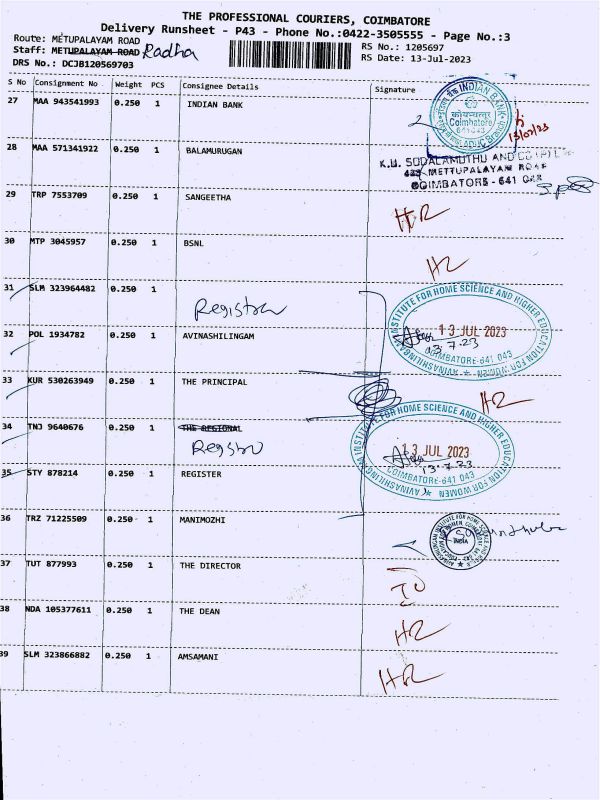 THE PROFESSIONAL COURIERS, COIMBATORE
Delivery Runsheet - P43 - Phone No.:0422-3505555 - Page No.:3
Route: METUPALAYAM ROAD
Staff: METUPALAYAM ROAD Radha
DRS No.: DCJB120569703
RS No.: 1205697
RS Date: 13-Jul-2023
S No Consignment No Weight PCS Consignee Details Signature
27 MAA 943541993 0.250 1 INDIAN BANK
INDIAN BANK
कोयम्बत्तूर
Coimbatore
641 043
13/07/23
28 MAA 571341922 0.250 1 BALAMURUGAN
K.U. SODALAMUTHU AND CO (P) L
METTUPALAYAM ROAD
COIMBATORE - 641 043
29 TRP 7553709 0.250 1 SANGEETHA
HR
30 MTP 3045957 0.250 1 BSNL
HR
31 SLM 323964482 0.250 1
Registrar
AVINASHILINGAM INSTITUTE FOR HOME SCIENCE AND HIGHER EDUCATION FOR WOMEN
13 JUL 2023
13.7.23
COIMBATORE-641 043
32 POL 1934782 0.250 1 AVINASHILINGAM
33 KUR 530263949 0.250 1 THE PRINCIPAL
HR
34 TNJ 9640676 0.250 1 THE REGIONAL
Registro
AVINASHILINGAM INSTITUTE FOR HOME SCIENCE AND HIGHER EDUCATION FOR WOMEN
13 JUL 2023
13.7.23
COIMBATORE-641 043
35 STY 878214 0.250 1 REGISTER
36 TRZ 71225509 0.250 1 MANIMOZHI
37 TUT 877993 0.250 1 THE DIRECTOR
38 NDA 105377611 0.250 1 THE DEAN
HR
39 SLM 323866882 0.250 1 AMSAMANI
HR